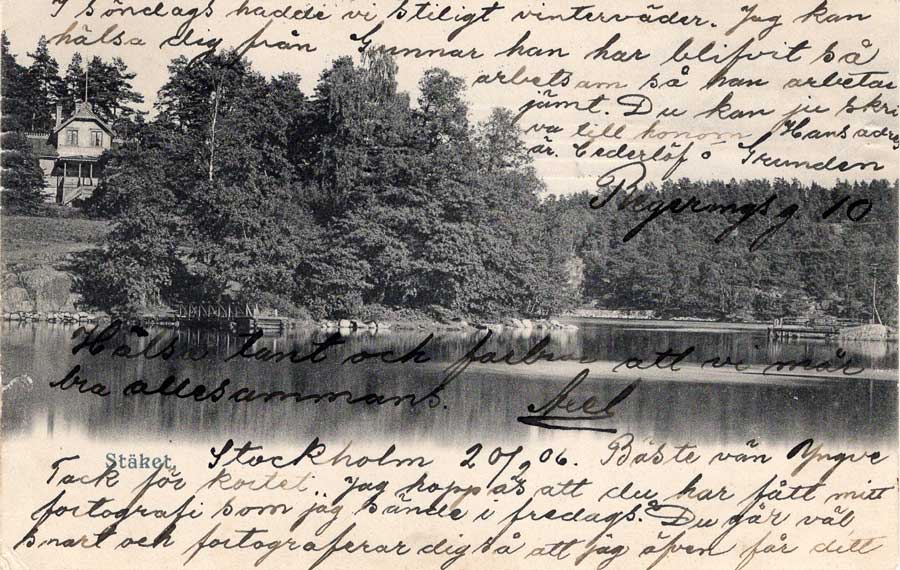 Stäket.
Stockholm 20/2 06. Bäste vän Yngve
Tack för kortet. Jag hoppas att du har fått mitt
fortografi som jag sände i fredags. Du går väl
snart och fortograferar dig så att jag äfven får ditt
I söndags hadde vi stiligt vinterväder. Jag kan
hälsa dig från Gunnar han har blifvit så
arbetsam så han arbetar
jämt. Du kan ju skri
va till honom. Hans adres
är. Cederlöf o Trunden
Regeringsg 10
Hälsa tant och farbror att vi mår
bra allesammans.
Axel